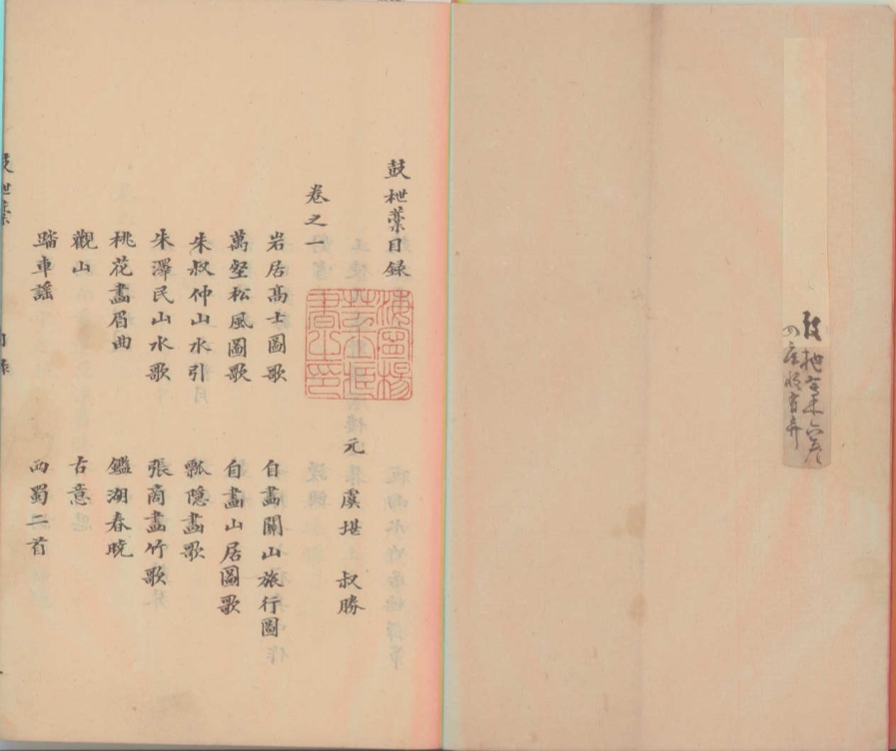 鼓枻藁六卷
鼓枻藁目錄
海寧楊
芸士臧
書之印
元 虞堪 叔勝
卷之一
岩居髙士圖歌 自畫關山旅行圖
萬壑松風圖歌 自畫山居圖歌
朱叔仲山水引 瓢隱畫歌
朱澤民山水歌 張商畫竹歌
桃花畫眉曲 鑑湖春曉
觀山 古意
踏車謠 西蜀二首